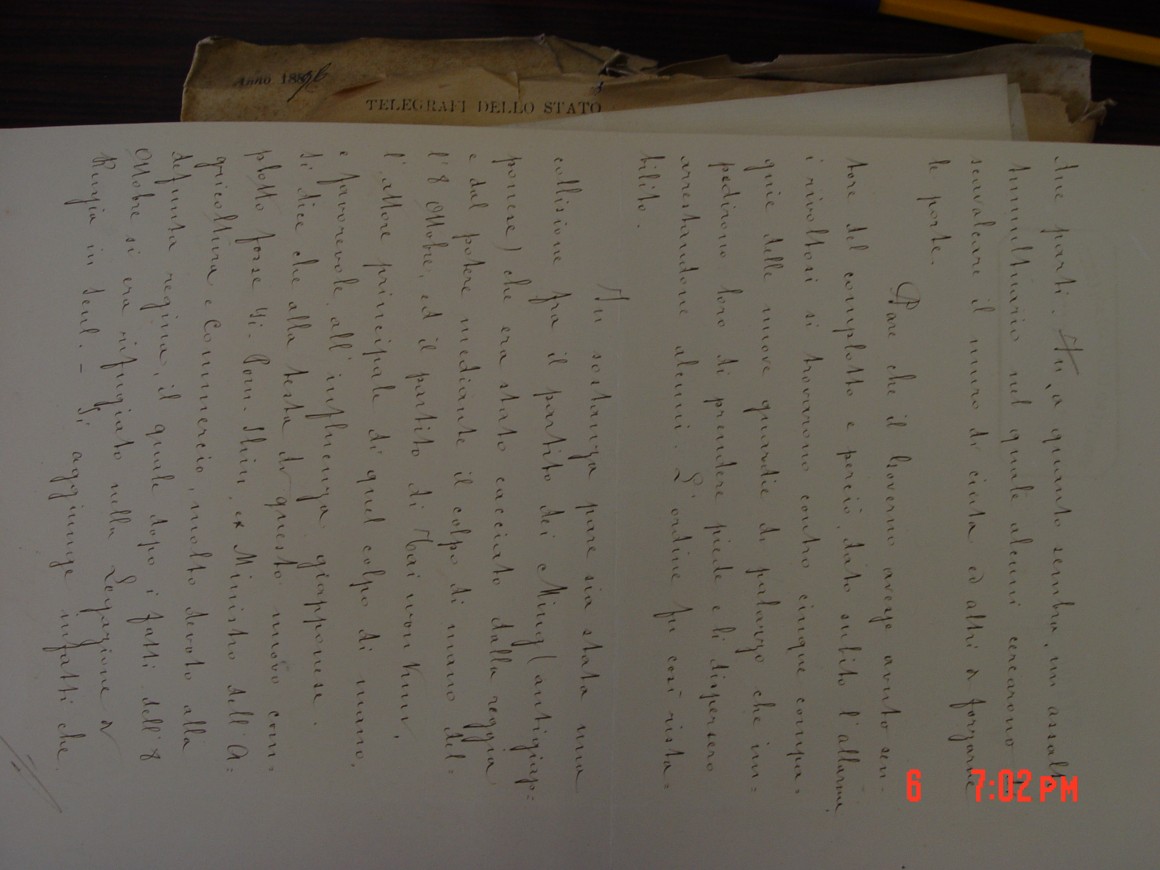 Anno 1896
TELEGRAFI DELLO STATO
due parti. Fu, a quanto sembra, un assalto
tumultuario nel quale alcuni cercarono di
scavalcare il muro di cinta ed altri di forzarne
le porte.
Pare che il Governo avesse avuto sen-
tore del complotto e perciò, dato subito l'allarme,
i rivoltosi si trovarono contro cinque compa-
gnie delle nuove guardie di palazzo che im=
pedirono loro di prendere piede e li dispersero
arrestandone alcuni. L'ordine fu così rista-
bilito.
In sostanza pare sia stata una
collisione fra il partito dei Ming (antigiap=
ponese) che era stato cacciato dalla reggia
e dal potere mediante il colpo di mano del-
l'8 Ottobre, ed il partito di Tai won Kun,
l'attore principale di quel colpo di mano,
e favorevole all'influenza giapponese.
Si dice che alla testa di questo nuovo com-
plotto fosse Yi. Pom. Shin, ex Ministro dell'A=
gricoltura e Commercio, molto devoto alla
defunta regina, il quale dopo i fatti dell'8
Ottobre si era rifugiato nella Legazione di
Russia in Seul. - Si aggiunge infatti che
6 7:02 PM